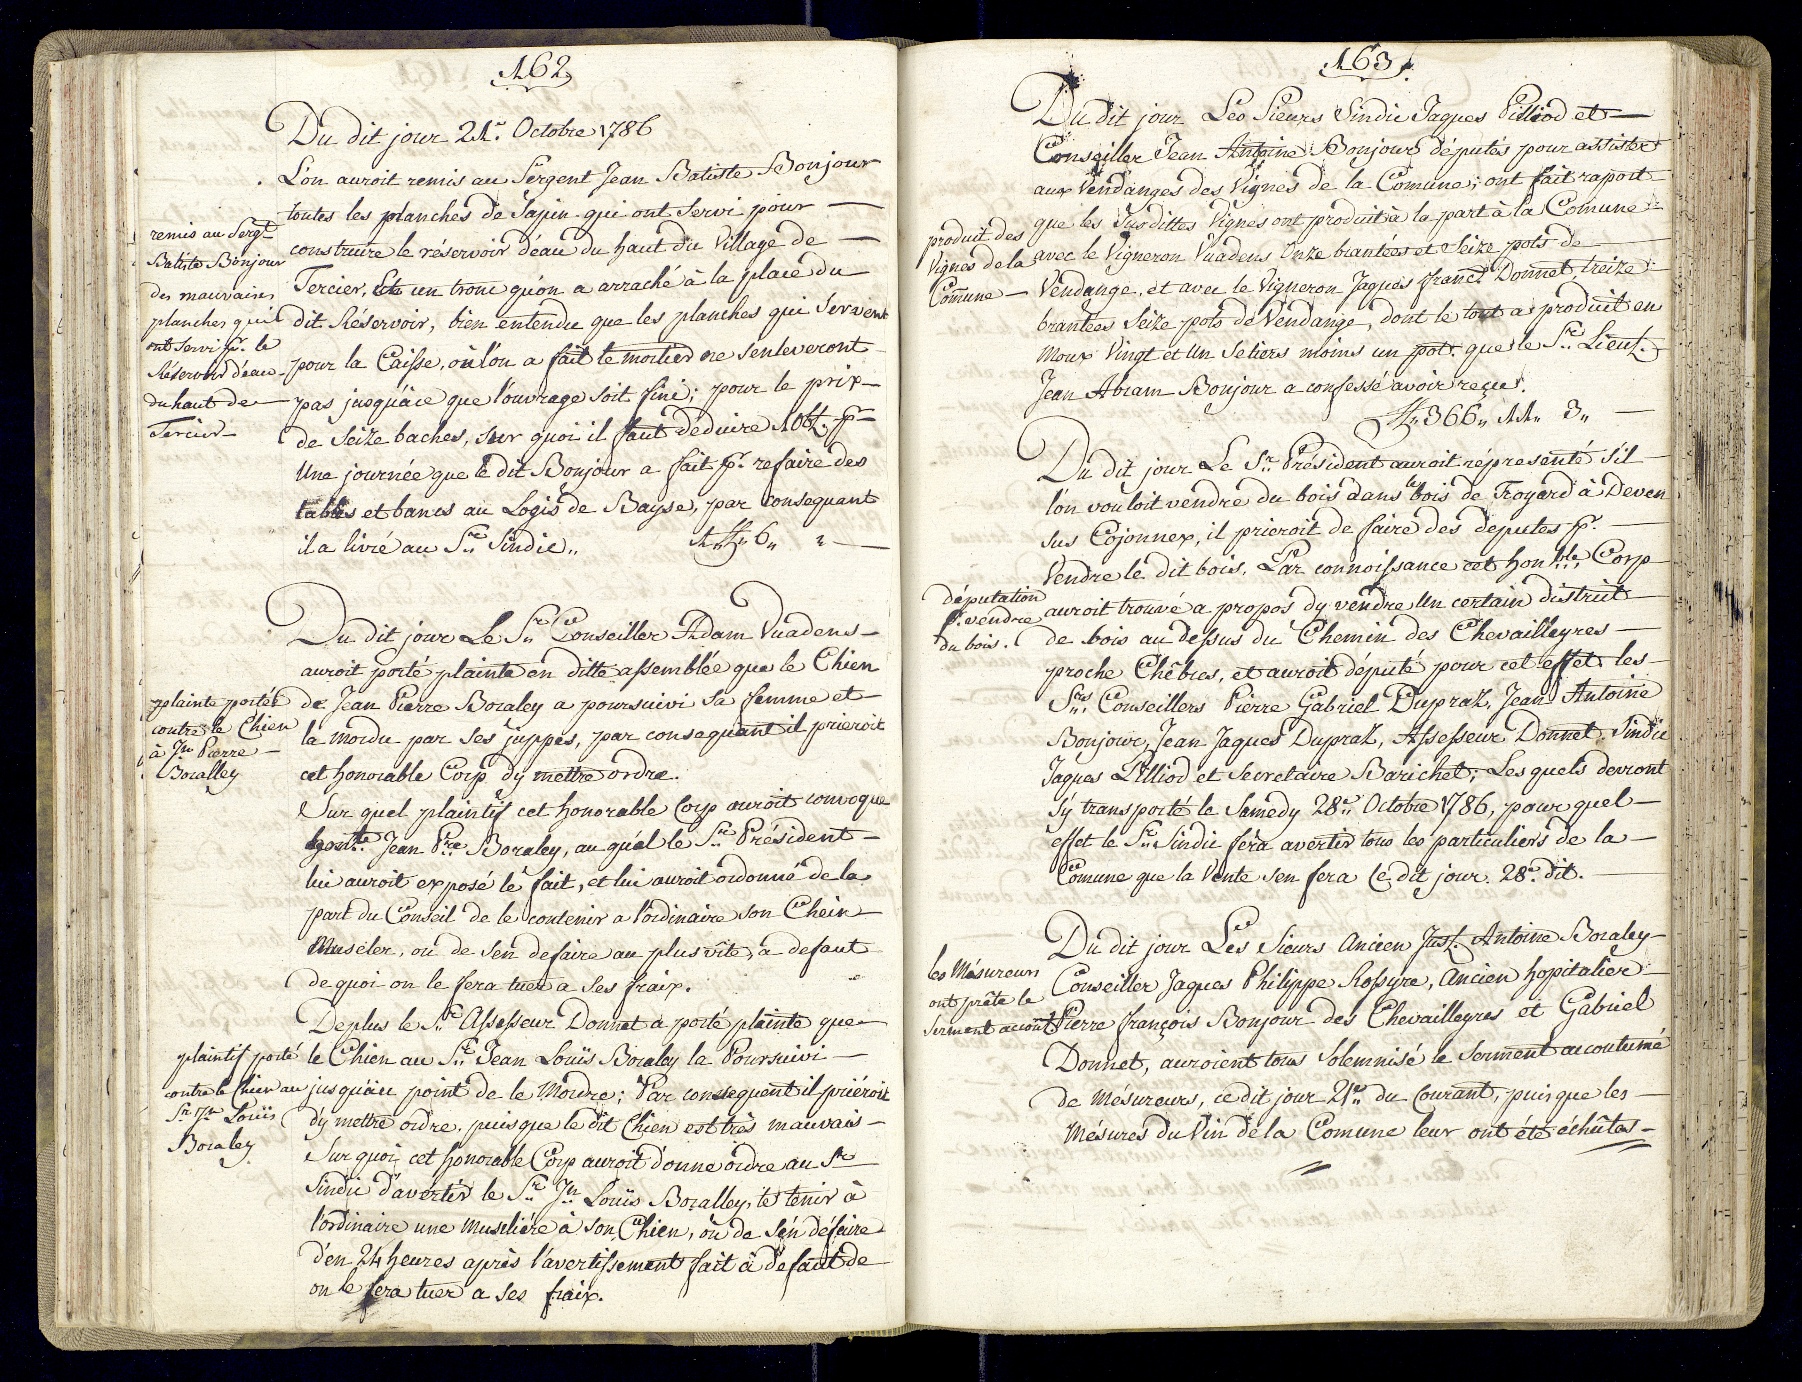 162
Du dit jour 21e. Octobre 1786
L'on auroit remis au Sergent Jean Batiste Bonjour
toutes les planches de Sapin qui ont Servi pour
remis au Sergt
Batiste Bonjour
des mauvaises
planches quil
ont servi pr. le
Réservoir d'eau
du haut de
Tercier
construire le réservoir d'eau du haut du Village de
Tercier, Et un tronc qu'on a arraché à la place du
dit Réservoir, bien entendu que les planches qui Servent
pour la Caisse, où l'on a fait le mortier ne senleveront
pas jusqu'àce que l'ouvrage soit fini; pour le prix
de Seize baches, sur quoi il faut déduire 10 btz. pr
Une journée que le dit Bonjour a fait pr. refaire des
tables et bancs au Logis de Bayse, par consequant
il a livré au Sr. Sindic,, 6,,
Du dit jour Le Sr. Conseiller Adam Vuadens
auroit porté plainte en ditte assemblée que le Chien
plainte portée
contre le Chien
à Jn Pierre
Boralley
de Jean Pierre Boraley a poursuivi Sa femme et
la mordu par Ses juppes, par consequant il prieroit
cet honorable Corp d'y mettre ordre.
Sur quel plaintif cet honorable Corp auroit convoque
Jean Pre. Boraley, au quel le Sr. Président
lui auroit exposé le fait, et lui auroit ordonné de la
part du Conseil de le contenir a l'ordinaire son Chein
Museler, ou de Sen defaire au plus vite, a defaut
de quoi on le fera tuer a Ses fraix.
De plus le Sr. Assesseur Donnet a porté plainte que
plaintif porté
contre le Chien au
Sr. Jn Louis
Boraley
le Chien au Sr. Jean Louïs Boraley la Poursuivi
jusqu'au point de le Mordre; Par consequent il priéroit
d'y mettre ordre. puisque le dit Chien est très mauvais
Sur quoi cet honorable Corp auroit donne ordre au Sr
Sindic d'avertir le Sr. Jn. Louïs Boralley, de tenir à
l'ordinaire une Muselière à son Chien, ou de Sén défaire
d'en 24 heures après l'avertissement fait à défaut de
on le fera tuer a Ses fraix.
163
Du dit jour Les Sieurs Sindic Jaques Pilliod et
Conseiller Jean Antoine Bonjour députés pour assister
aux Vendanges des Vignes de la Comune; ont fait raport
que les Susdittes Vignes ont produit à la part à la Comune
produit des
Vignes de la
Comune
avec le Vigneron Vuadens Onze brantées et Seize pots de
Vendange, et avec le Vigneron Jaques franc. Donnet, treize
brantées Seize pots de Vendange, dont le tout a produit en
Moux Vingt et Un Setiers moins un pot. que le Sr. Lieut.
Jean Abram Bonjour a confessé avoir reçu.
366,, 11,, 3,,
Du dit jour Le Sr. Président auroit répresenté s'il
l'on vouloit vendre du bois dans le bois de Froyard à Deven
sus Cojonnex, il prieroit de faire des deputes pr.
Vendre le dit bois. Par connoissance cet honble. Corp
députation
pr. vendre
du bois.
auroit trouvé a propos d'y vendre Un certain district
de bois au dessus du Chemin des Chevalleyres
proche Chêbres, et auroit député pour cet effet les
Srs. Conseillers Pierre Gabriel Dupraz, Jean Antoine
Bonjour, Jean Jaques Dupraz, Assesseur Donnet Sindic
Jaques Pilliod et Secretaire Barichet; Lesquels devront
s'y transporté le Samedy 28e. Octobre 1786, pour quel
effet le Sr. Sindic fera avertir tous les particuliers de la
Comune que la Vente sen fera le dit jour 28e. dit.
Du dit jour Les Sieurs ancien Just. Antoine Boraley
les Mésureurs
ont prâte le
Serment acout
Conseiller Jaques Philippe Rossyre, Ancien hopitalier
Pierre françois Bonjour des Chevailleyres et Gabriel
Donnet, auroient tous Solemnisé le Serment accoutumé
de Mésureurs, ce dit jour 21e. du Courant, puis que les
Mésures du Vin de la Comune leur ont été échûtes